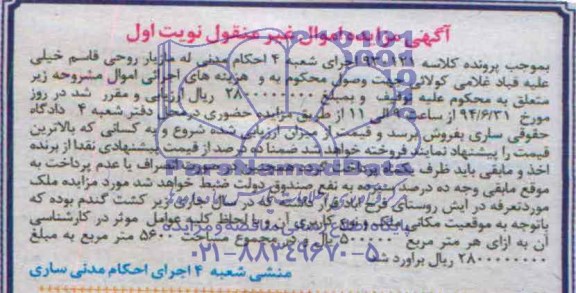 آگهی مزایده اموال غیر منقول نوبت اول
بموجب پرونده کلاسه ۹۳۰۱۲۱ اجرای شعبه ۴ احکام مدنی له مازیار روحی قاسم خیلی
علیه قباد غلامی کولائی جهت وصول محکوم به و هزینه های اجرائی اموال مشروحه زیر
متعلق به محکوم علیه توقیف و بمبلغ ۲۸۰۰۰۰۰۰۰۰ ریال ارزیابی و مقرر شد در روز
مورخ ۹۴/۶/۳۱ از ساعت ۹ الی ۱۱ از طریق مزایده حضوری در محل دفتر شعبه ۴ دادگاه
حقوقی ساری بفروش برسد و قیمت از میزان ارزیابی شده شروع و به کسانی که بالاترین
قیمت را پیشنهاد نمایند فروخته خواهد شد ضمنا ده درصد از قیمت پیشنهادی نقدا از برنده
اخذ و مابقی باید ظرف یکماه پرداخت گردد همچنین در صورت انصراف یا عدم پرداخت به
موقع مابقی وجه ده درصد سپرده به نفع صندوق دولت ضبط خواهد شد مورد مزایده ملک
موردتعرفه در آیش روستای فرح آباد قرار داشته که در سال جاری زیر کشت گندم بوده که
باتوجه به موقعیت مکانی ملک و نوع کاربری آن و با لحاظ کلیه عوامل موثر در کارشناسی
آن به ازای هر متر مربع ۵۰۰۰۰۰ ریال و در مجموع مساحت ۵۶۰۰ متر مربع به مبلغ
۲۸۰۰۰۰۰۰۰۰ ریال برآورد شد
منشی شعبه ۴ اجرای احکام مدنی ساری
ParsNamadData
پایگاه اطلاع رسانی مناقصه و مزایده
۰۲۱-۸۸۳۴۹۶۷۰-۵